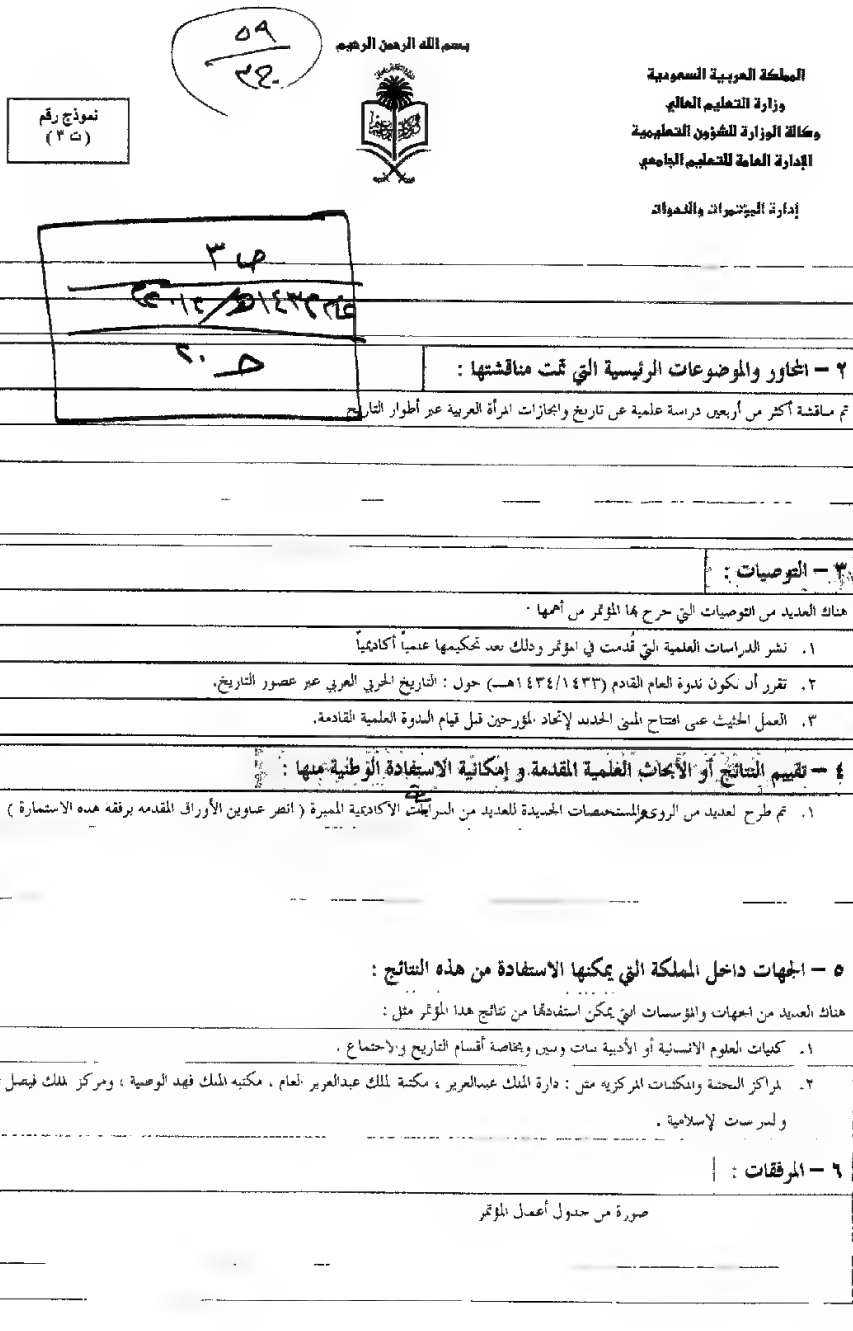 بسم الله الرحمن الرحيم
المملكة العربية السعودية
وزارة التعليم العالي
وكالة الوزارة للشؤون التعليمية
الإدارة العامة للتعليم الجامعي
إدارة المؤتمرات والندوات
نموذج رقم
( ت ٣ )
٥٩
ص ٣
عام ١٤٣٣هـ / ٢٠١٢م
ح ٢٠
٢ – المحاور والموضوعات الرئيسية التي تمت مناقشتها :
تم مناقشة أكثر من أربعين دراسة علمية عن تاريخ وانجازات المرأة العربية عبر أطوار التاريخ
٣ – التوصيات :
هناك العديد من التوصيات التي خرج بها المؤتمر من أهمها :
١. نشر الدراسات العلمية التي قُدمت في المؤتمر وذلك بعد تحكيمها علمياً أكاديمياً
٢. تقرر أن تكون ندوة العام القادم (١٤٣٤/١٤٣٣هـــ) حول : التاريخ الحربي العربي عبر عصور التاريخ.
٣. العمل الحثيث على افتتاح المبنى الجديد لإتحاد المؤرخين قبل قيام الندوة العلمية القادمة.
٤ – تقييم النتائج أو الأبحاث العلمية المقدمة و إمكانية الاستفادة الوطنية منها :
١. تم طرح العديد من الروى والمستخلصات الجديدة للعديد من الدراسات الاكاديمية المميزة ( انظر عناوين الأوراق المقدمه برفقه هده الاستمارة )
٥ – الجهات داخل المملكة التي يمكنها الاستفادة من هذه النتائج :
هناك العديد من الجهات والمؤسسات التي يمكن استفادتها من نتائج هدا المؤتمر مثل :
١. كليات العلوم الانسانية أو الأدبية بنات وبنين وبخاصة أقسام التاريخ والاجتماع .
٢. المراكز البحثية والمكتبات المركزيه مثل : دارة الملك عبدالعزيز ، مكتبة الملك عبدالعزيز العام ، مكتبه الملك فهد الوطنية ، ومركز الملك فيصل
والدراسات الإسلامية .
٦ – المرفقات :
صورة من جدول أعمال المؤتمر